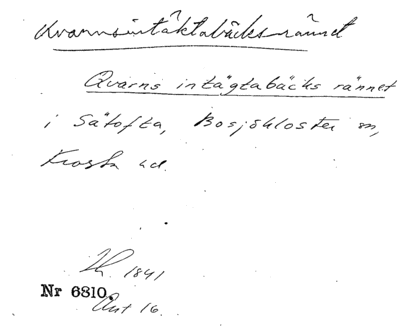 Kvarnsintäktabäcksrännet
Qvarns intägtabäcks rännet
i Sätofta, Bosjökloster sn,
Frosta hd.
Lh. 1841
Nr 6810.
Akt 16.